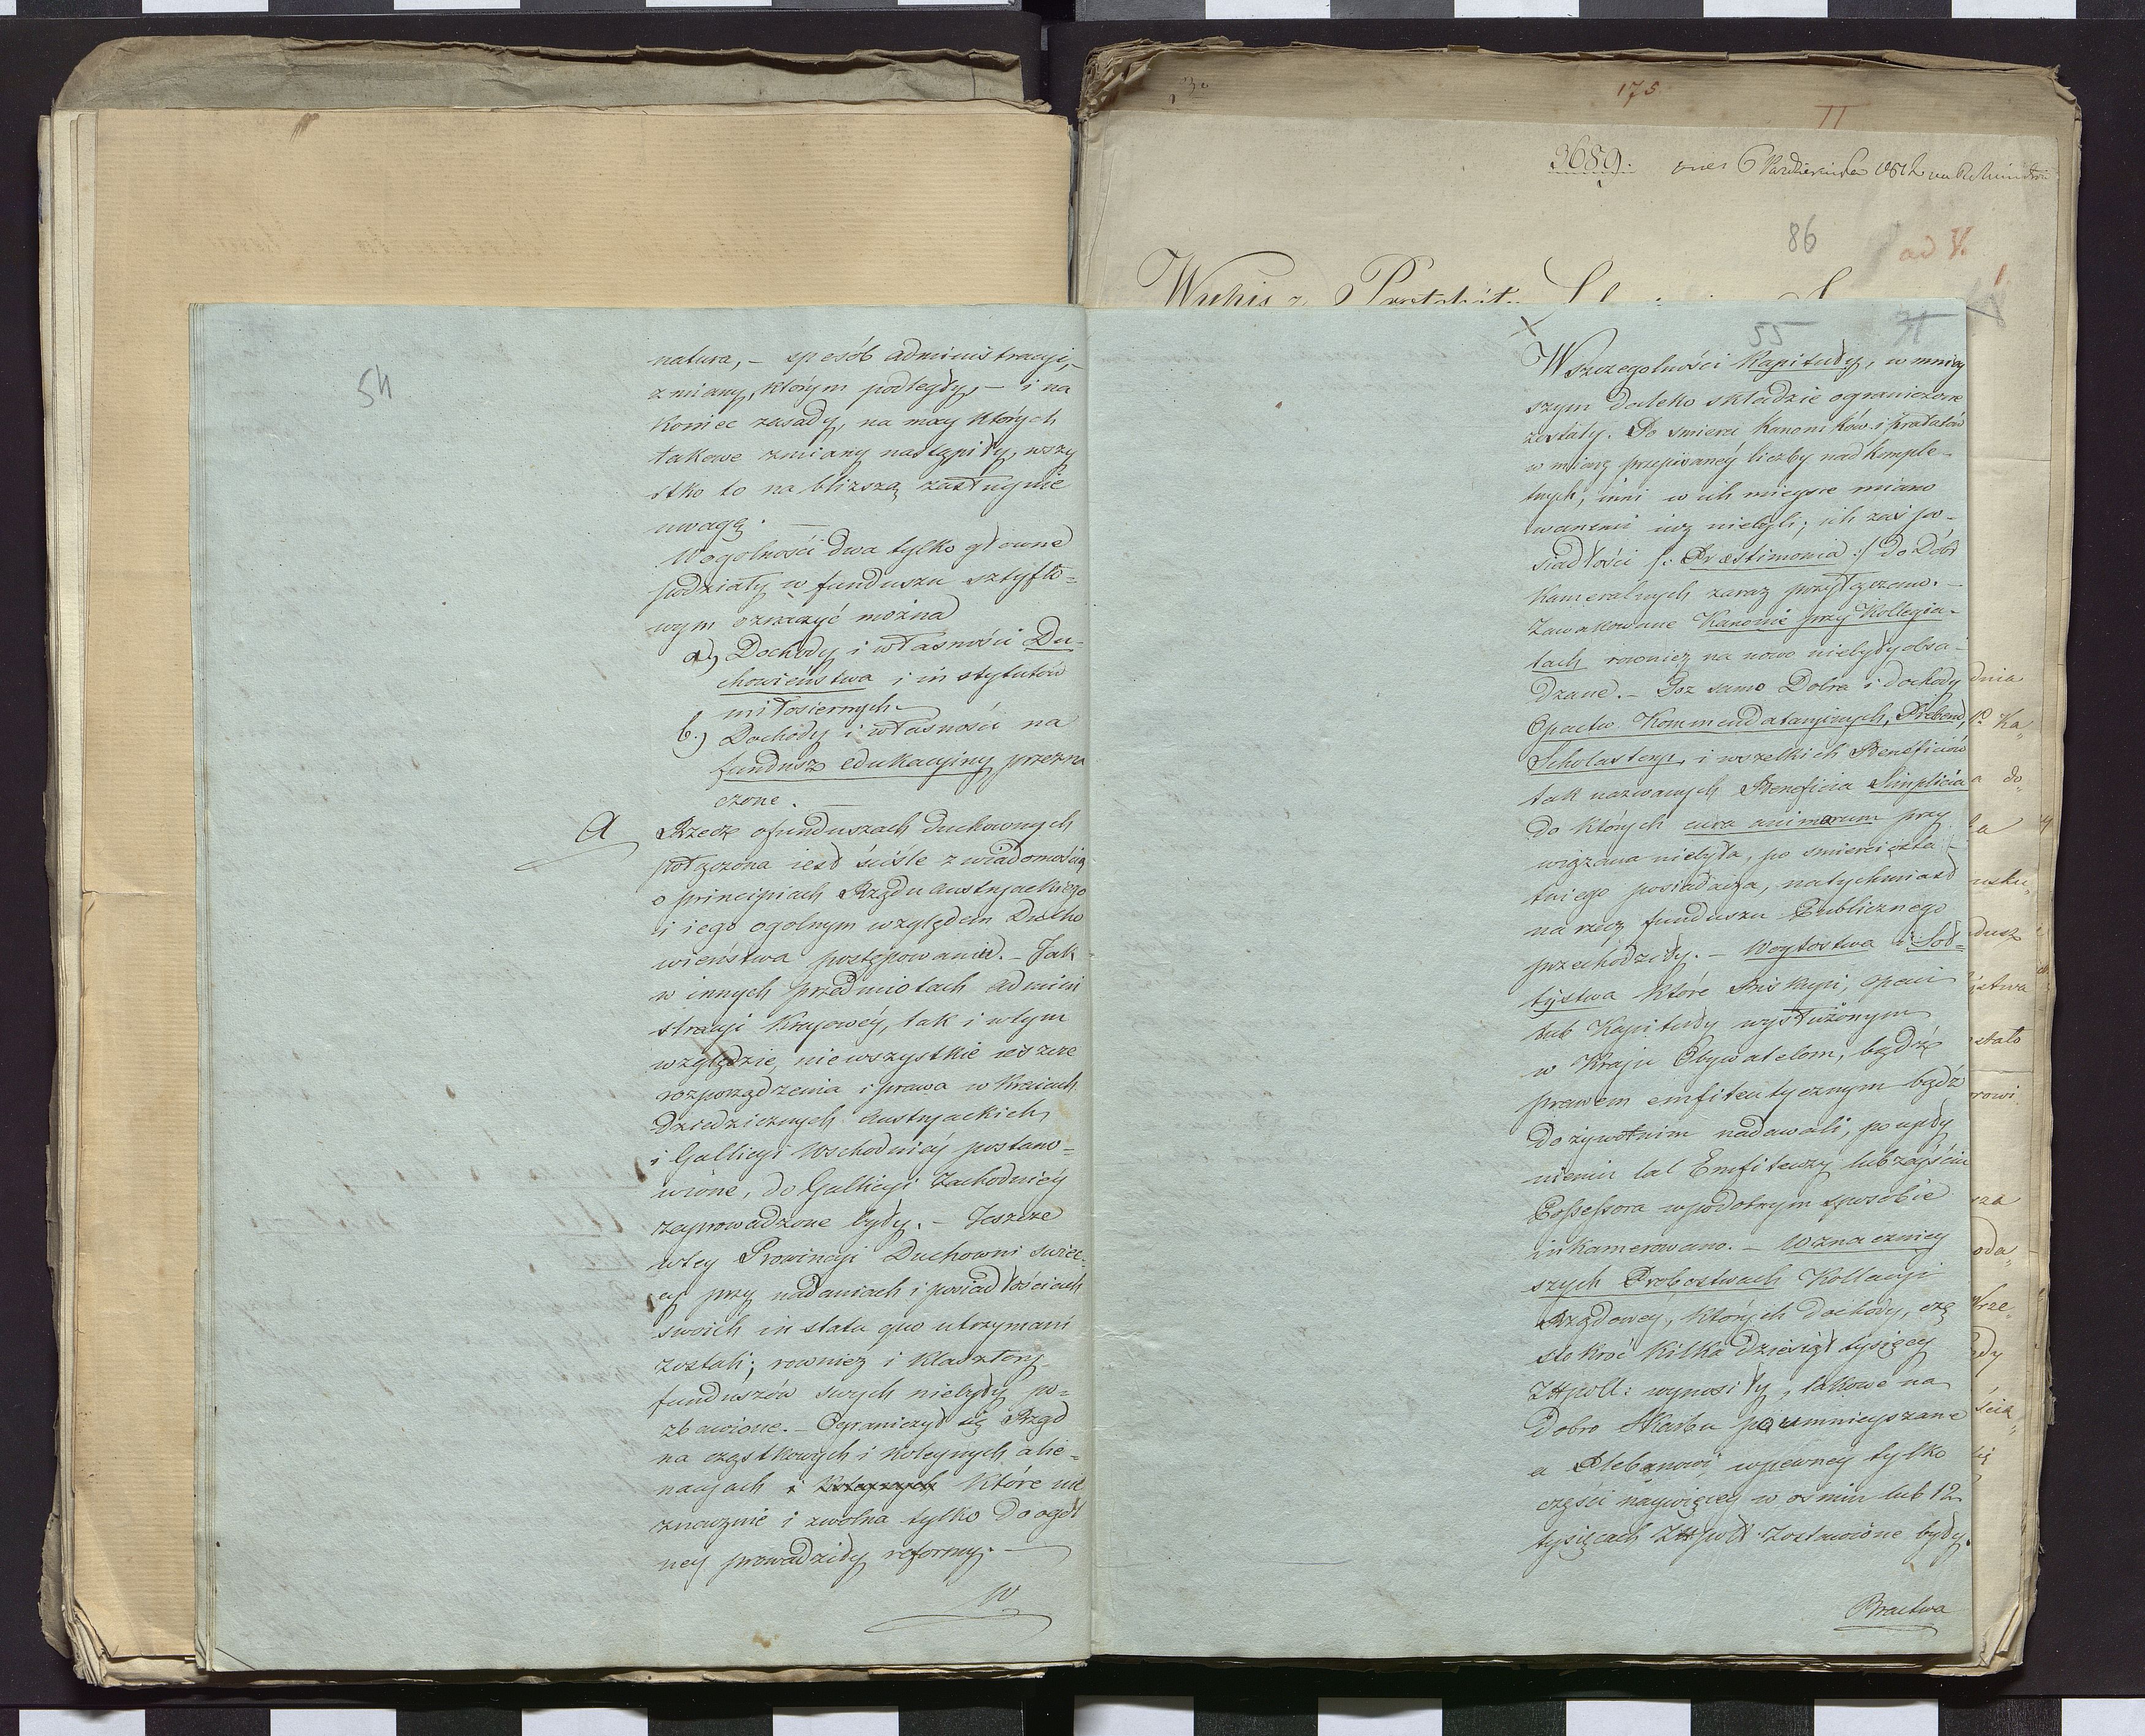 54
natura, – sposób administracyi, –
zmiany, którym podległy, – i na
koniec zasady, na mocy których
takowe zmiany nastąpiły, wszy
stko to na bliższą zasługuie
uwagę. —
W ogolności dwa tylko głowne
podziały w funduszu sztyfto=
wym oznaczyć można
a) Dochody i własności Du-
chowieństwa i instytutów
miłosiernych.
b.) Dochody i własności na
fundusz edukacyiny przezna
czone. —
A Rzecz o funduszach duchownych
połączona iest ściśle z wiadomością
o principiach Rządu Austryackiego
i iego ogolnym względem Ducho
wieństwa postępowaniu. – Jak
w innych przedmiotach admini
stracyi Krajowéy, tak i w tym
względzie, nie wszystkie ieszcze
rozporządzenia i prawa w Kraiach
Dziedzicznych Austryackich
i Gallicyi Wschodniéy postano=
wione, do Gallicyi Zachodniéy
zaprowadzone były. – Jeszcze
w tey Prowincyi Duchowni świec
cy przy nadaniach i posiadłościach
swoich in statu quo utrzymani
zostali; rownież i Klasztory
funduszów swych niebyły po=
zbawione. – Ograniczył się Rząd
na cząstkowych i koleynych alie=
nacyach i koleynych które nie
znacznie i zwolna tylko do ogól
ney prowadziły reformy. —
W
175
II
3689.
86
ad V.
55
W szczegolności Kapituły, w mniey
szym daleko składzie ograniczone
zostały. Po smierci Kanoników i Prałatów
w miarę przepisanéy liczby nadkomple-
tnych, inni w ich mieysce miano
wanemi iuż niebyli; ich zaś po-
siadłości /: Praestimonia :/ do Dóbr
Kameralnych zaraz przyłączono. –
Zawakowane Kanonie przy Kollegia-
tach rownież na nowo niebyły obsa-
dzane. – Toż samo Dobra i dochody
Opactw Kommendataryinych, Prebend,
Scholasteryi, i wszelkich Beneficiów
tak nazwanych Beneficia Simplicia
do których cura animarum przy
wiązana niebyła, po smierci osta-
tniego posiadacza, natychmiast
na rzecz funduszu Publicznego
przechodziły. – Woytostwa i Soł=
tystwa które Biskupi, Opaci
lub Kapituły wysłużonym
w Kraju Obywatelom, bądź
prawem emfiteutycznym bądź
dożywotnim nadawali, po upły
nieniu lat Emfiteuzy lub zeyściu
Possessora w podobnym sposobie
inkamerowano. – W znaczniey
szych Probostwach Kollacyi
Rządowey, których dochody, czę
sto kroć kilkadziesiąt tysięcy
Złłpoll: wynosiły, takowe na
Dobro Skarbu poumnieyszane
a Plebanowi, w pewnéy tylko
części naywięcey w ośmiu lub 12
tysiącach Złłpoll zostawione były.
Bractwa